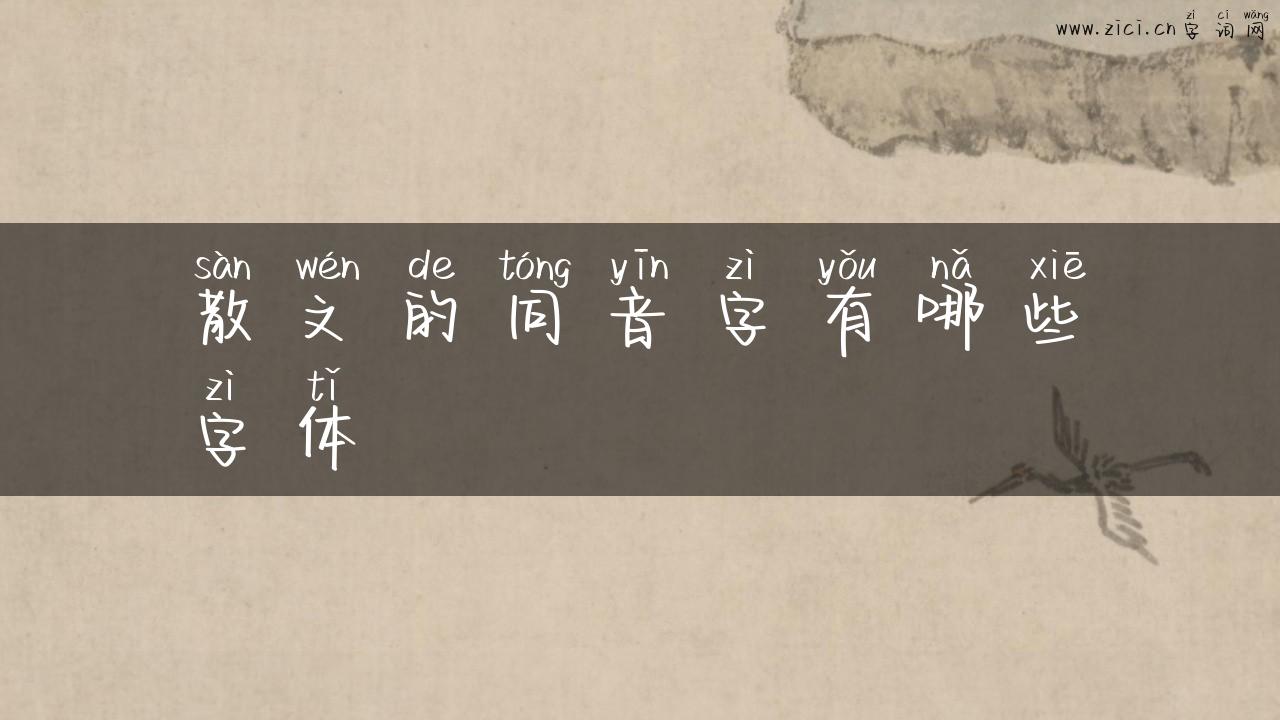 zì cí wǎng
www.zici.cn 字 词 网
sàn wén de tóng yīn zì yǒu nǎ xiē
散 文 的 同 音 字 有 哪 些
zì tǐ
字 体